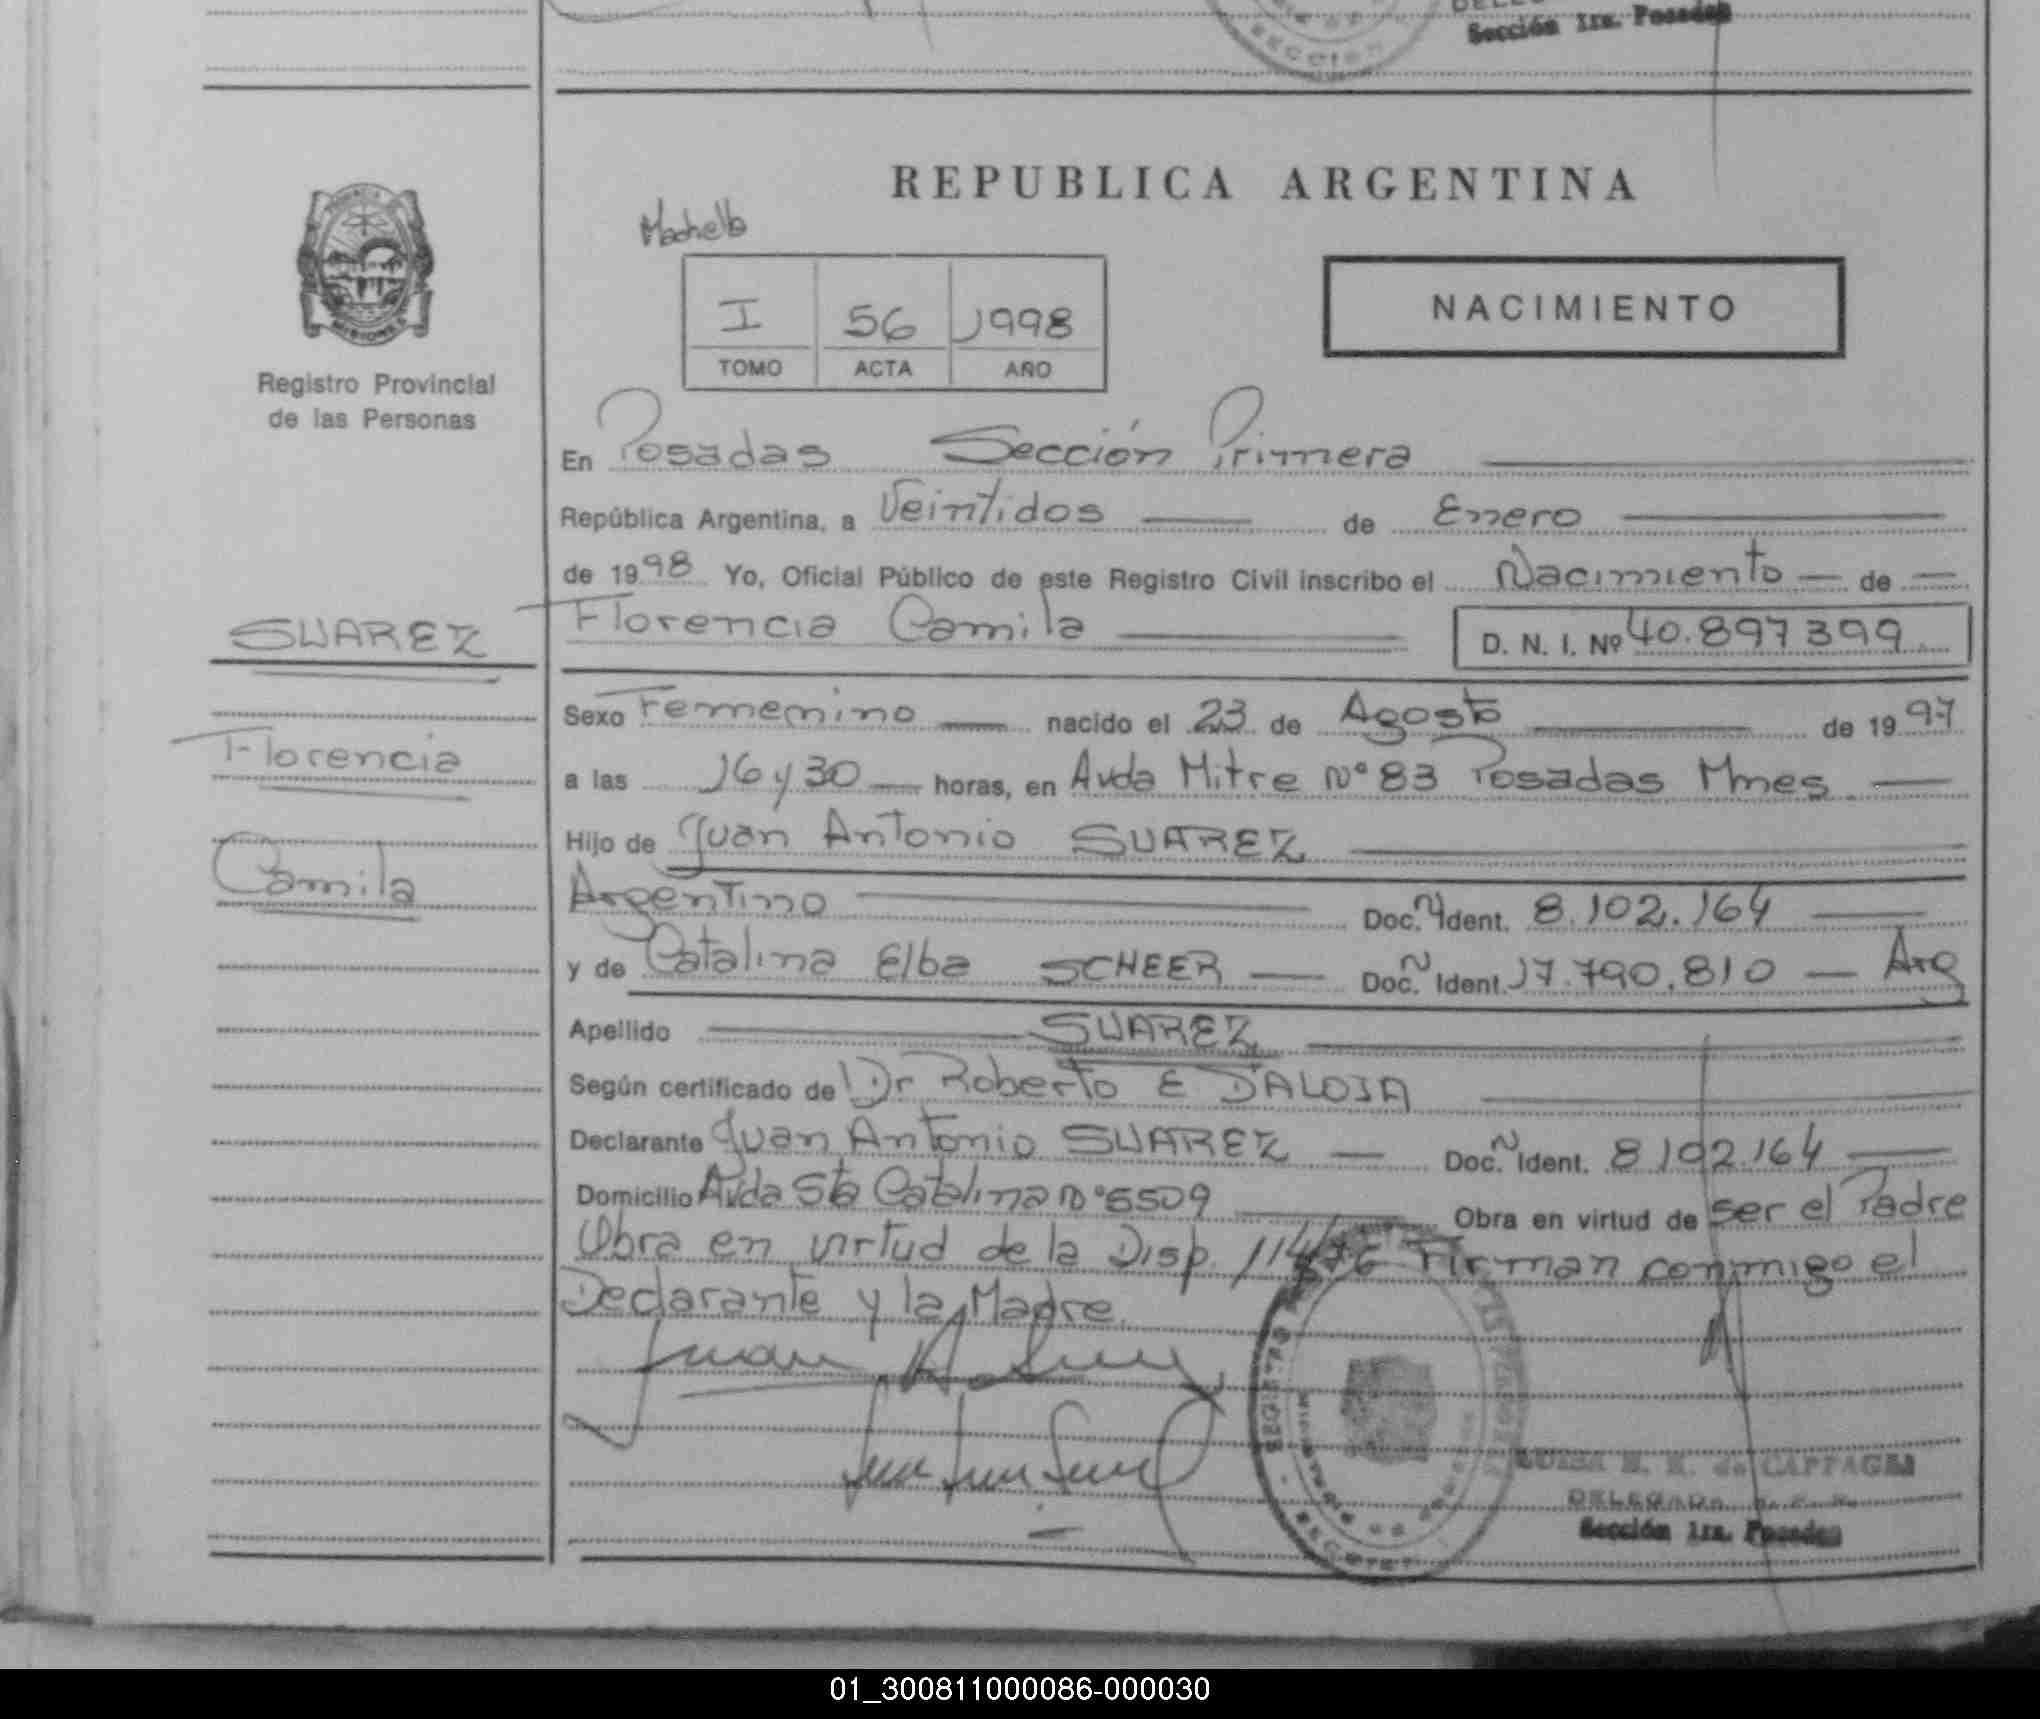 Sección 1ra. Posadas
REPUBLICA ARGENTINA
I 56 1998
TOMO ACTA AÑO
NACIMIENTO
Registro Provincial
de las Personas
En Posadas Sección Primera
República Argentina, a Veintidos de Enero
de 1998 Yo, Oficial Público de este Registro Civil inscribo el Nacimiento de
Florencia Camila D. N. I. Nº 40.897399
SUAREZ
Florencia
Camila
Sexo Femenino nacido el 23 de Agosto de 1997
a las 16 y 30 horas, en Avda Mitre Nº 83 Posadas Mnes
Hijo de Juan Antonio SUAREZ
Argentino Doc. N Ident. 8.102.164
y de Catalina Elba SCHEER Doc. N Ident. 17.790.810 Arg
Apellido SUAREZ
Según certificado de Dr Roberto E DALOIA
Declarante Juan Antonio SUAREZ Doc. N Ident. 8102.164
Domicilio Avda Sta Catalina Nº 5509 Obra en virtud de ser el Padre
Obra en virtud de la Disp. 114/76 Firman conmigo el
Declarante y la Madre.
DELEGADA
Sección 1ra. Posadas
01_300811000086-000030